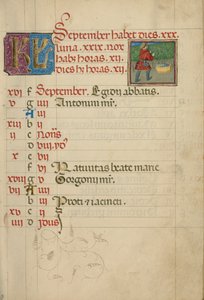 KL September habet dies. xxx.
luna. xxix. nox
habꝫ horas. xij.
dies ħ horas. xij.
xvj f September. Egidij abbatis.
v g iiij Antonini mr̃.
A iij
xiij b ij
ij c Nonis
d viij
x e vij
f vj Natiuitas beate marie
xviij g v Gorgonij mr̃.
vij A iiij
b iij Proti et iacincti.
xv c ij
iiij d Jdus